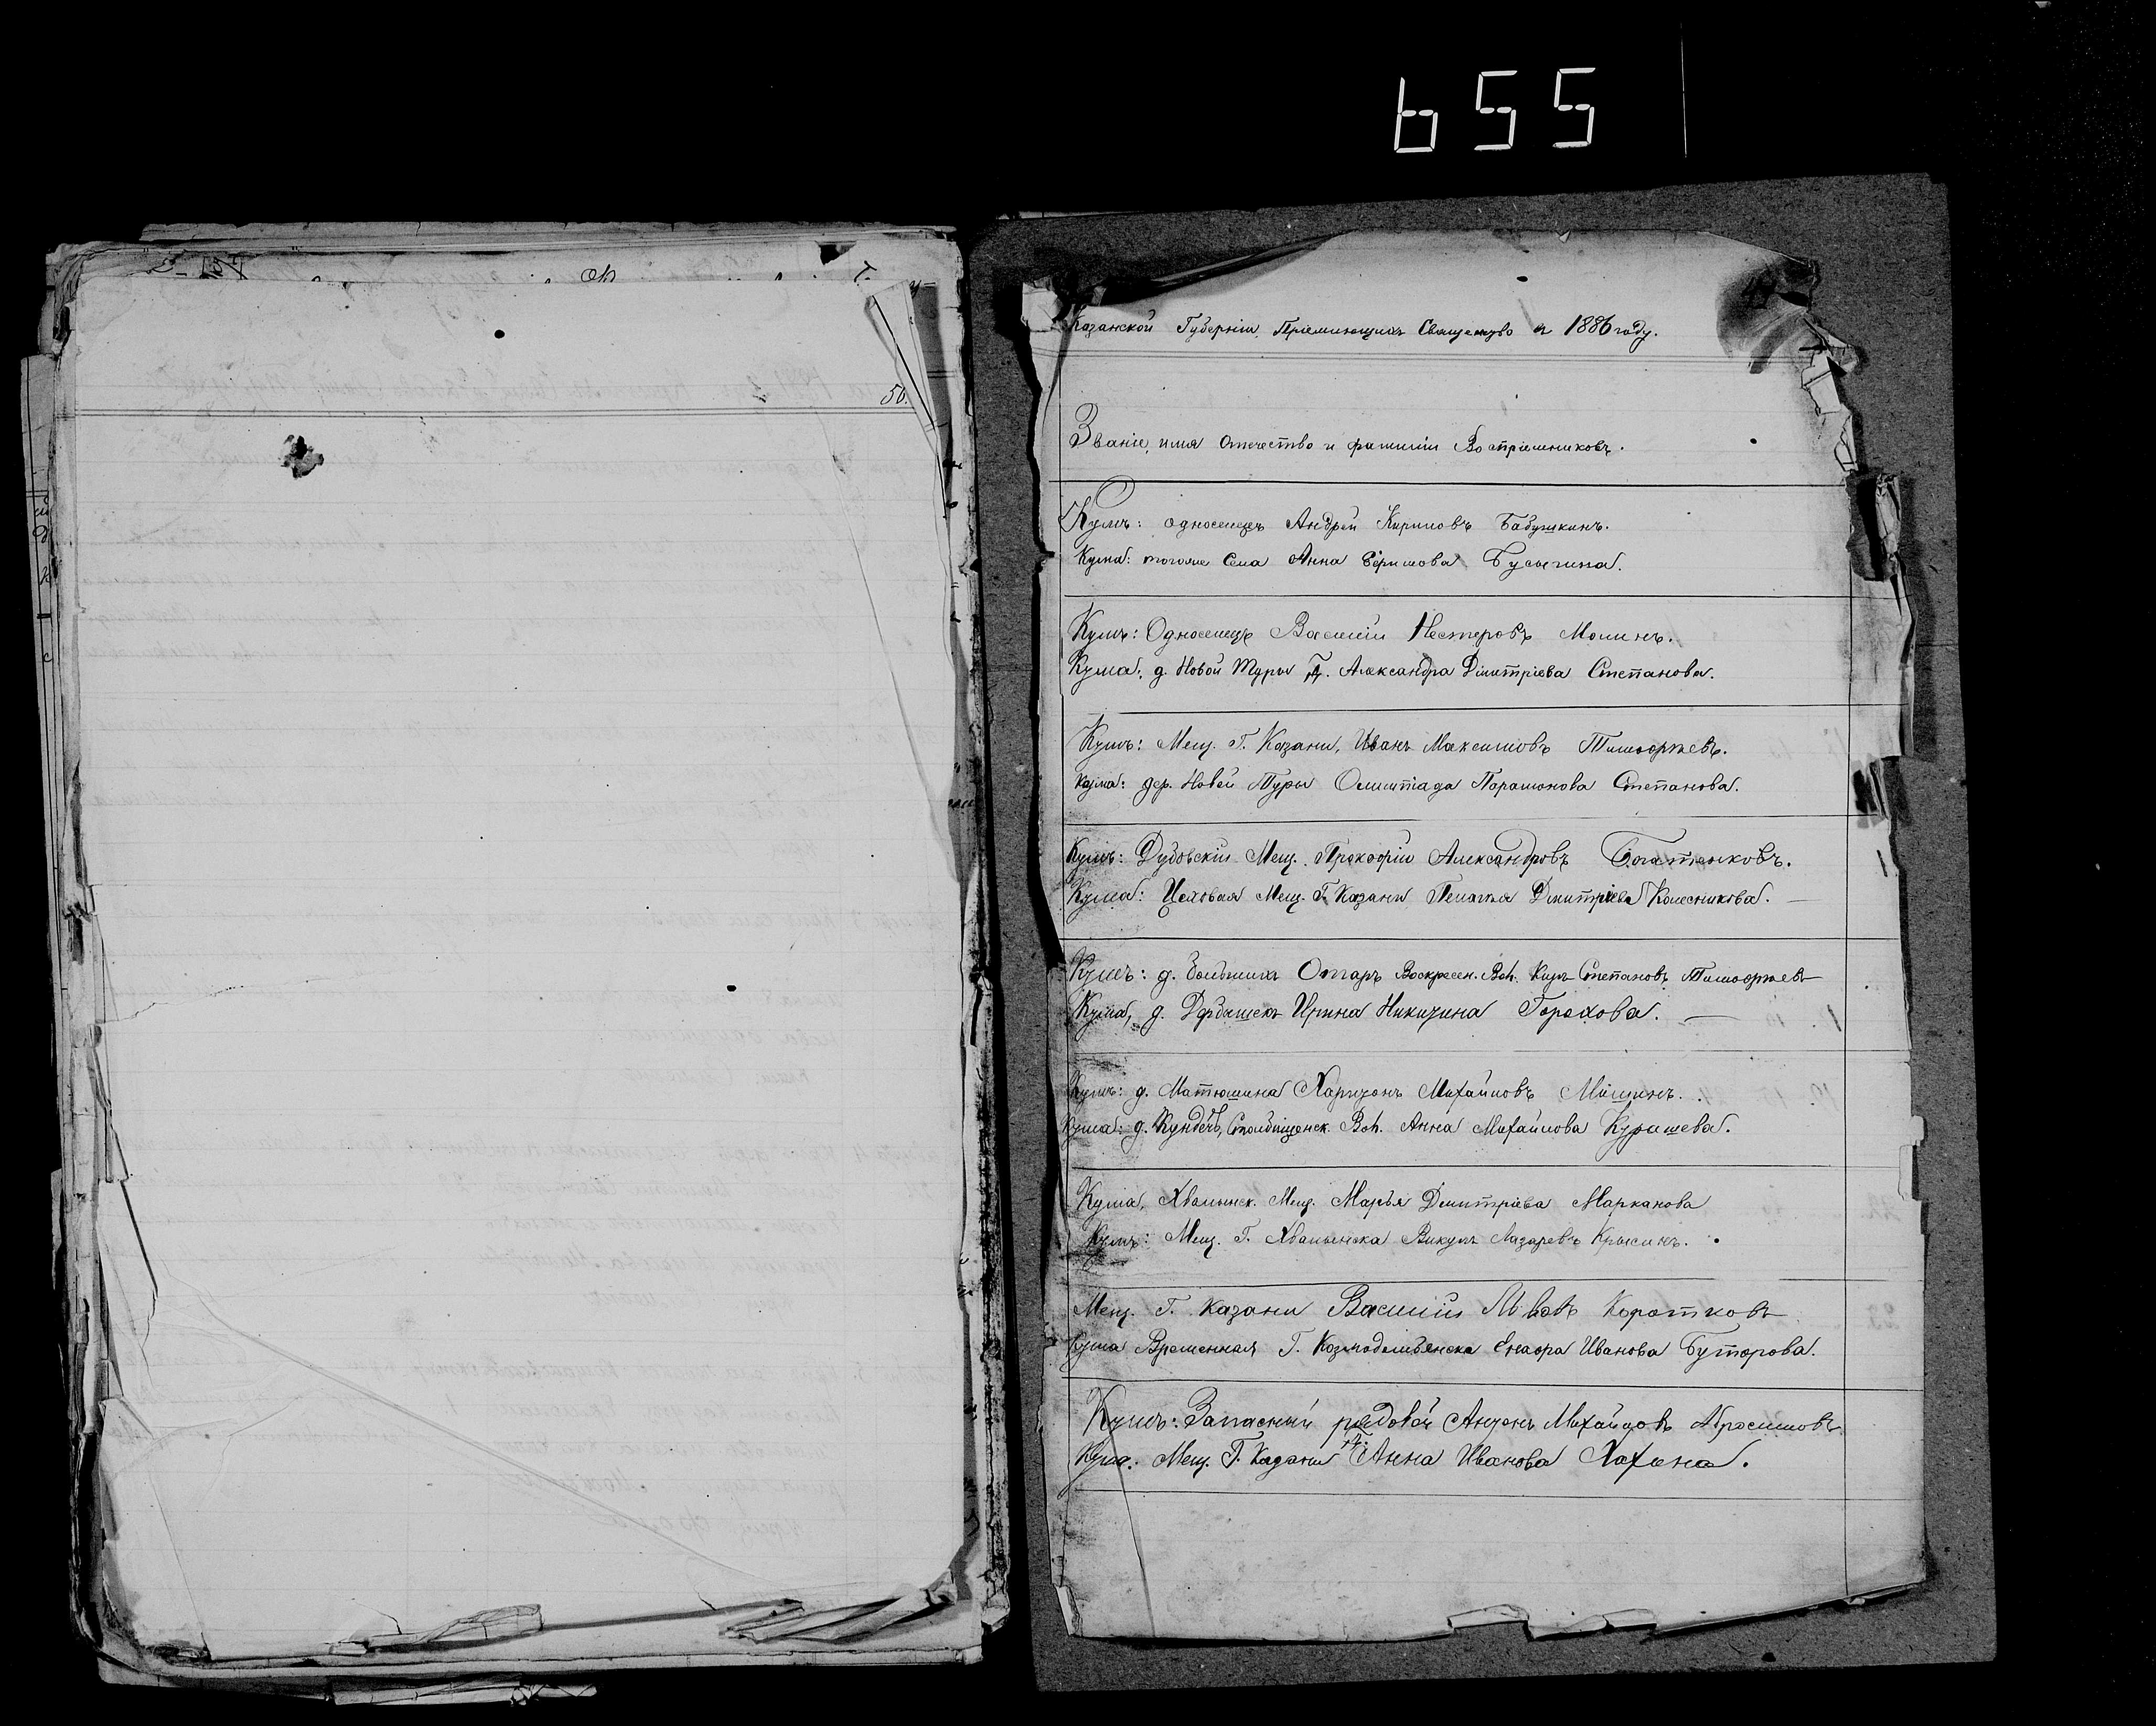 655
50.
Казанской Губерніи, Пріемлющихъ Священство в 1886 году.
Званіе, имя отчество и фамиліи Воспріемниковъ.
Кумъ: односелецъ Андрей Кириловъ Бабушкинъ.
Кума: тогоже Села Анна Ефимова Бусыгина.
Кумъ: Односелецъ Василій Нестеровъ Молинъ.
Кума: д. Новой Туры Александра Дмитріева Степанова.
Кумъ: Мещ. Г. Казани, Иванъ Максимовъ Тимофѣевъ.
Кума: дер. Новой Туры Олимпіада Парамонова Степанова.
Кумъ: Дубовскій Мещ. Прокофій Александровъ Богатенковъ.
Кума: Цеховая Мещ. Г. Казани Пелагея Дмитріева Колесникова.
Кумъ: д. Большихъ Отаръ Воскресен. Вол. Степановъ Тимофѣевъ
Кума, д. Дербышекъ Ирина Никитина Горохова.
Кумъ: д. Матюшина Харитонъ Михайловъ Мишинъ.
Кума: д. Столбищенск. Вол. Анна Михайлова Курашева.
Кума, Хвалынск. Мещ. Марья Дмитріева Марканова
Кумъ: Мещ. Г. Хвалынска Викулъ Лазаревъ Крысинъ.
Мещ. Г. Казани Василій Львовъ Коротковъ
Кума Временная Г. Козмодемьянска Иванова Буторова.
Кумъ: Запасный рядовой Антонъ Михайловъ Абросимовъ
Кума: Мещ. Г. Казани Анна Иванова Лахина.